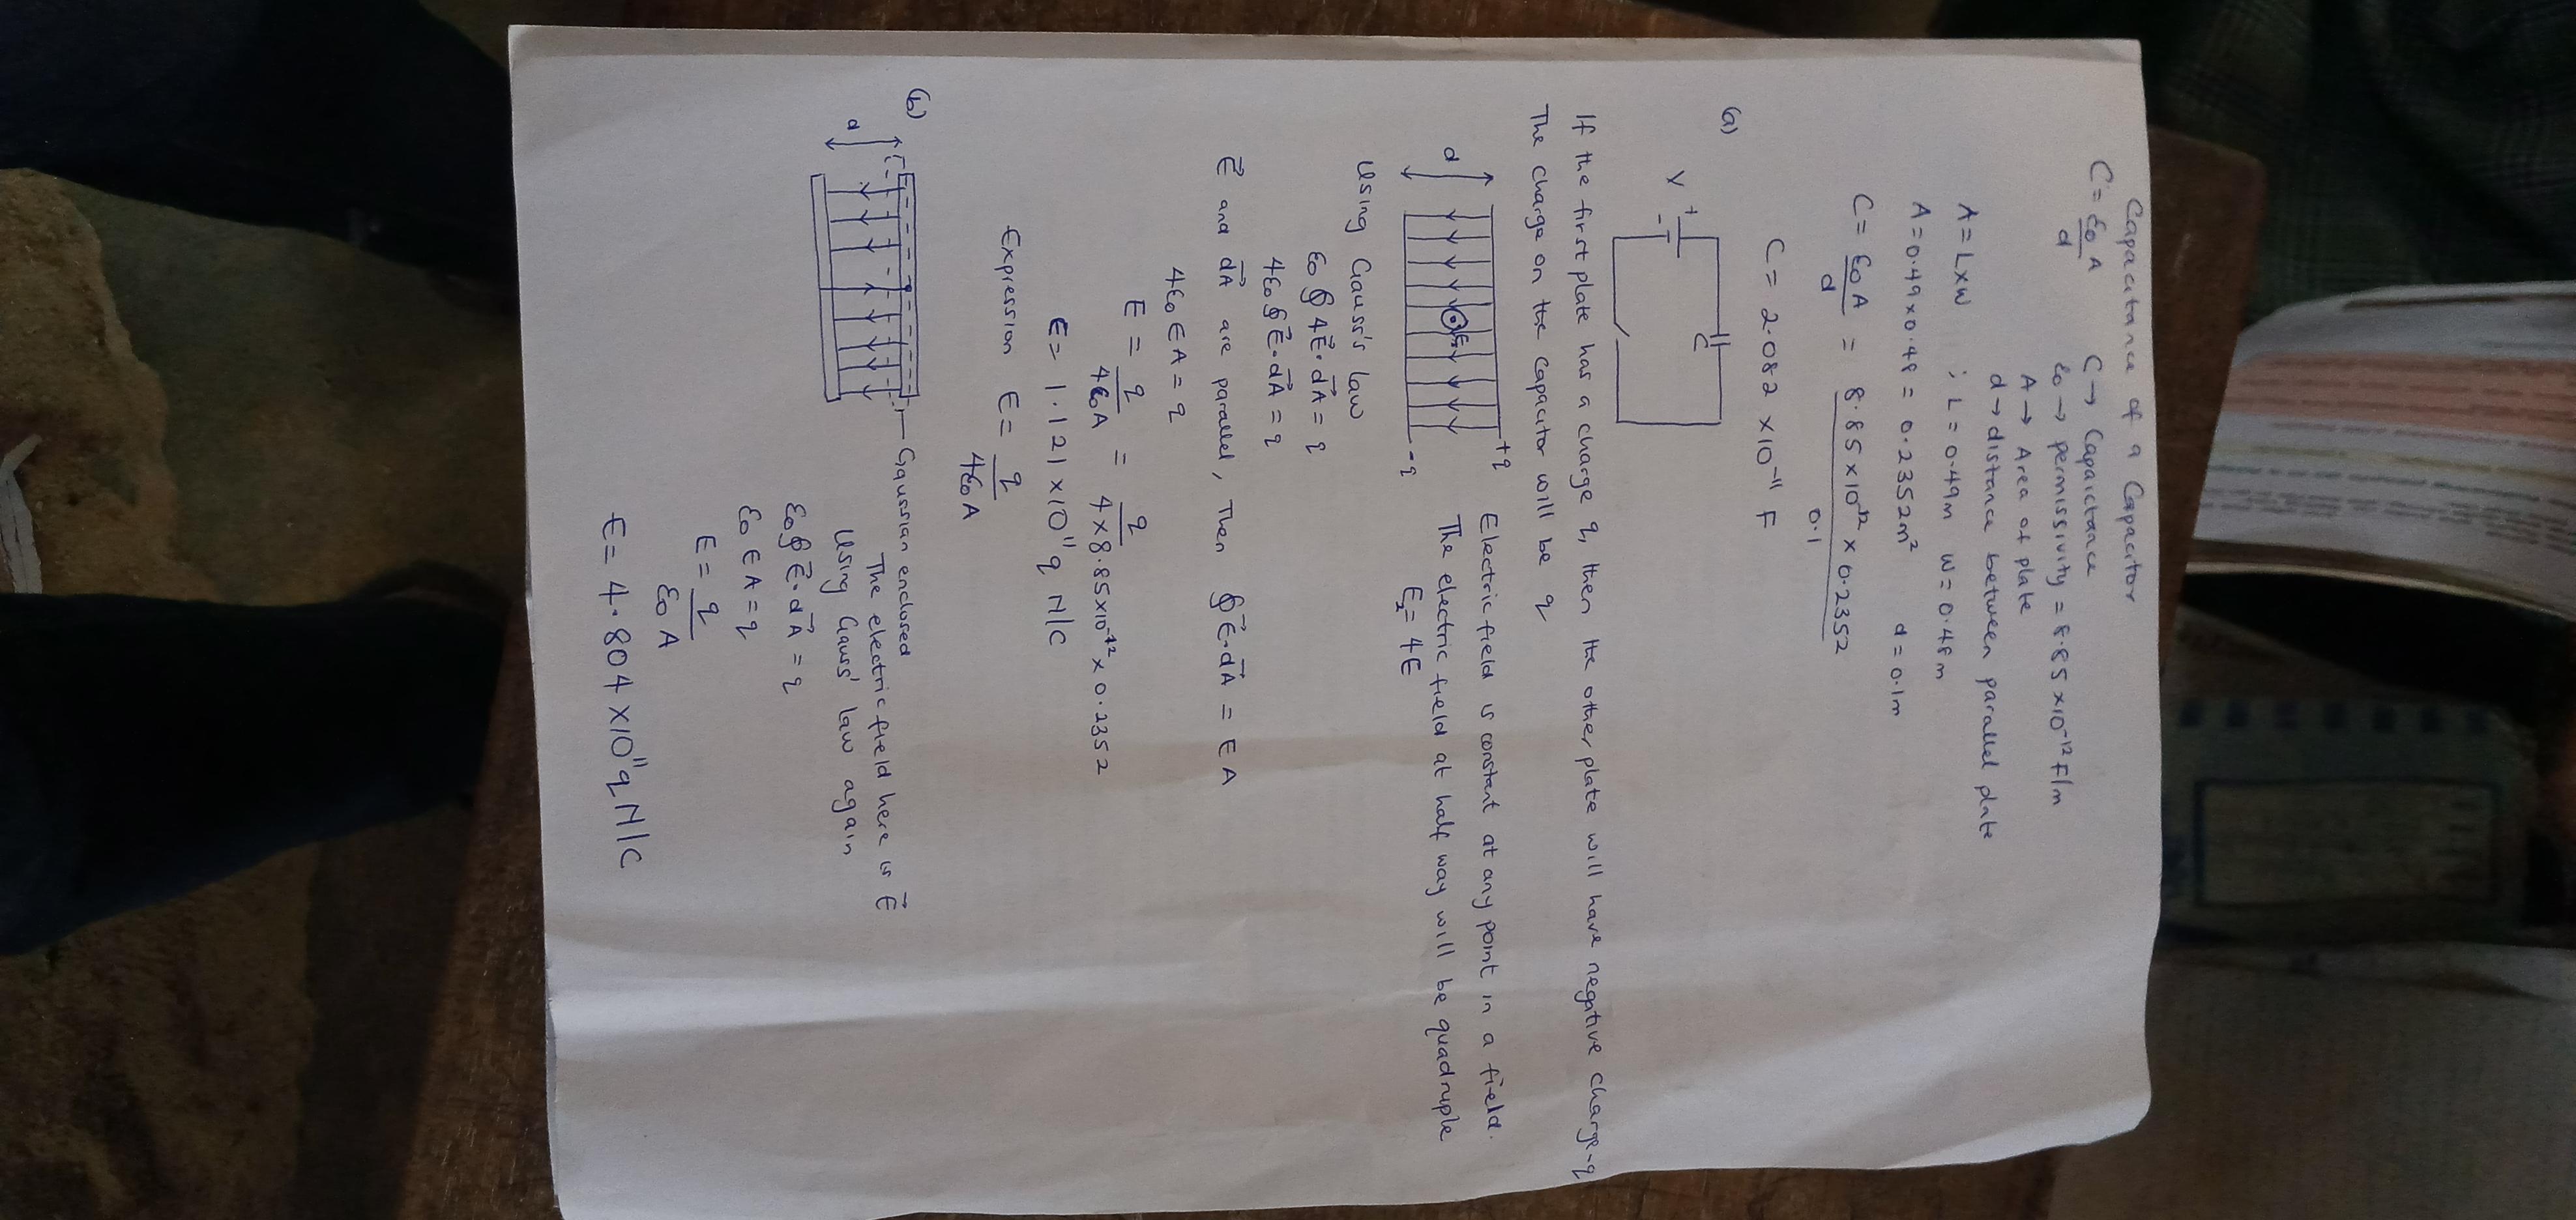 Capacitance of a Capacitor
C = ε₀A/d
C → Capacitance
ε₀ → permissivity = 8.85 × 10⁻¹² F/m
A → Area of plate
d → distance between parallel plate
A = L × W ; L = 0.49m W = 0.48m
A = 0.49 × 0.48 = 0.2352m² d = 0.1m
C = ε₀A/d = 8.85 × 10⁻¹² × 0.2352/0.1
C = 2.082 × 10⁻¹¹ F
(a)
V + - C
If the first plate has a charge q, then the other plate will have negative charge -q
The charge on the capacitor will be q
d +q -q E
Electric field is constant at any point in a field.
The electric field at half way will be quadruple
E₂ = 4E
Using Gauss's law
ε₀ ∮ 4E⃗·dA⃗ = q
4ε₀ ∮ E⃗·dA⃗ = q
E⃗ and dA⃗ are parallel, Then ∮ E⃗·dA⃗ = EA
4ε₀ E A = q
E = q/4ε₀A = q/4 × 8.85 × 10⁻¹² × 0.2352
E = 1.121 × 10¹¹ q N/C
Expression E = q/4ε₀A
(b)
d
Gaussian enclosed
The electric field here is E⃗
Using Gauss' law again
ε₀ ∮ E⃗·dA⃗ = q
ε₀ E A = q
E = q/ε₀A
E = 4.804 × 10¹¹ q N/C